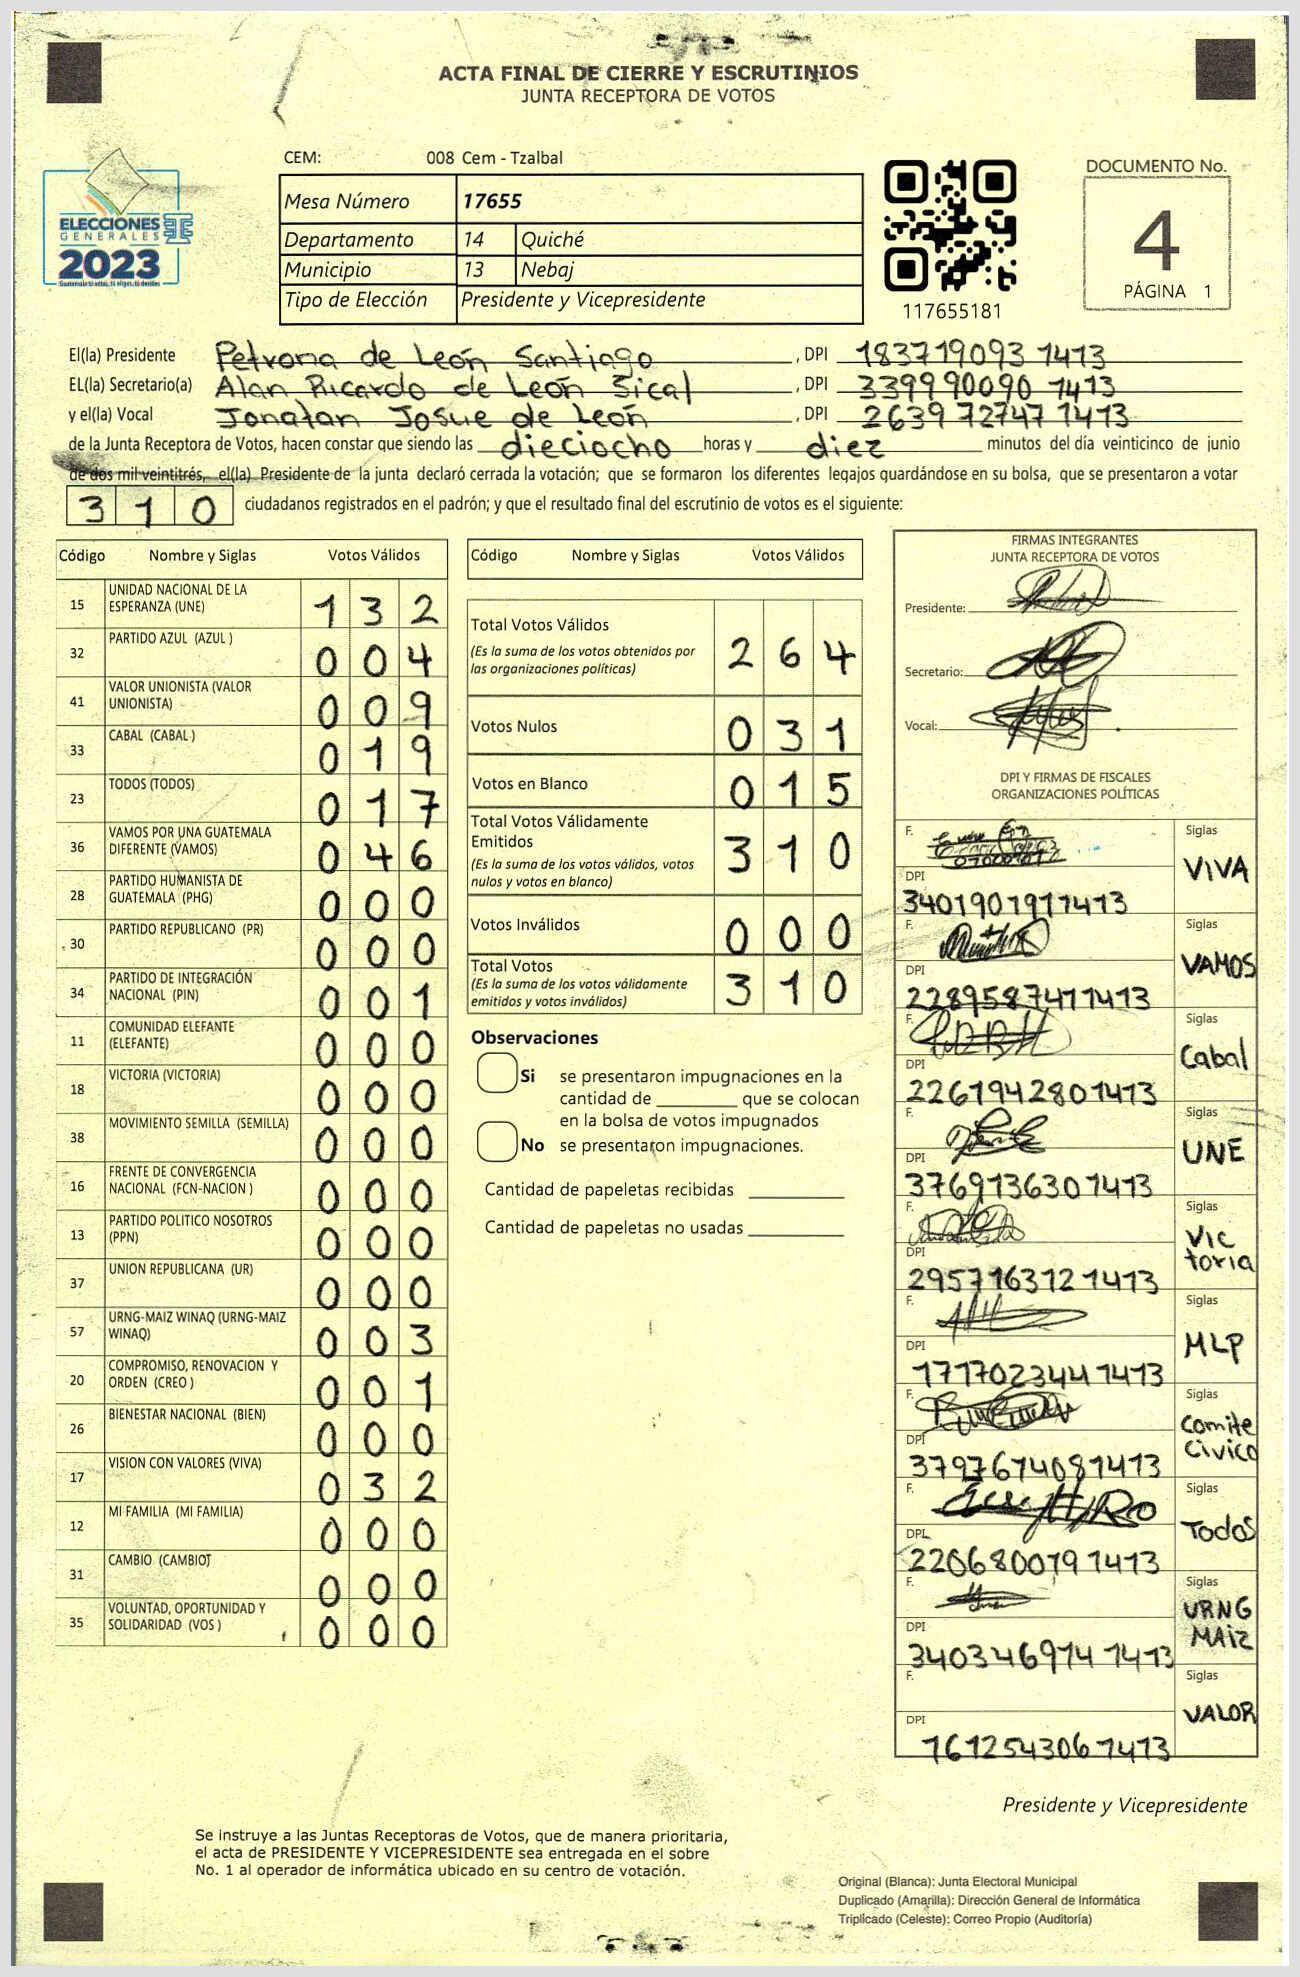 ACTA FINAL DE CIERRE Y ESCRUTINIOS
JUNTA RECEPTORA DE VOTOS
CEM: 008 Cem - Tzalbal
ELECCIONES
GENERALES
2023
Guatemala tú votas, tú eliges, tú decides
Mesa Número 17655
Departamento 14 Quiché
Municipio 13 Nebaj
Tipo de Elección Presidente y Vicepresidente
117655181
DOCUMENTO No.
4
PÁGINA 1
El(la) Presidente Petrona de León Santiago, DPI 183719093 1413
EL(la) Secretario(a) Alan Ricardo de León Sical, DPI 339990090 1413
y el(la) Vocal Jonatan Josue de León, DPI 2639 72747 1413
de la Junta Receptora de Votos, hacen constar que siendo las dieciocho horas y diez minutos del día veinticinco de junio
de dos mil veintitrés, el(la) Presidente de la junta declaró cerrada la votación; que se formaron los diferentes legajos guardándose en su bolsa, que se presentaron a votar
310 ciudadanos registrados en el padrón; y que el resultado final del escrutinio de votos es el siguiente:
Código Nombre y Siglas Votos Válidos
15 UNIDAD NACIONAL DE LA ESPERANZA (UNE) 132
32 PARTIDO AZUL (AZUL ) 004
41 VALOR UNIONISTA (VALOR UNIONISTA) 009
33 CABAL (CABAL ) 019
23 TODOS (TODOS) 017
36 VAMOS POR UNA GUATEMALA DIFERENTE (VAMOS) 046
28 PARTIDO HUMANISTA DE GUATEMALA (PHG) 000
30 PARTIDO REPUBLICANO (PR) 000
34 PARTIDO DE INTEGRACIÓN NACIONAL (PIN) 001
11 COMUNIDAD ELEFANTE (ELEFANTE) 000
18 VICTORIA (VICTORIA) 000
38 MOVIMIENTO SEMILLA (SEMILLA) 000
16 FRENTE DE CONVERGENCIA NACIONAL (FCN-NACION ) 000
13 PARTIDO POLITICO NOSOTROS (PPN) 000
37 UNION REPUBLICANA (UR) 000
57 URNG-MAIZ WINAQ (URNG-MAIZ WINAQ) 003
20 COMPROMISO, RENOVACION Y ORDEN (CREO ) 001
26 BIENESTAR NACIONAL (BIEN) 000
17 VISION CON VALORES (VIVA) 032
12 MI FAMILIA (MI FAMILIA) 000
31 CAMBIO (CAMBIO) 000
35 VOLUNTAD, OPORTUNIDAD Y SOLIDARIDAD (VOS ) 000
Código Nombre y Siglas Votos Válidos
Total Votos Válidos 264
(Es la suma de los votos obtenidos por
las organizaciones políticas)
Votos Nulos 031
Votos en Blanco 015
Total Votos Válidamente
Emitidos 310
(Es la suma de los votos válidos, votos
nulos y votos en blanco)
Votos Inválidos 000
Total Votos 310
(Es la suma de los votos válidamente
emitidos y votos inválidos)
Observaciones
Si se presentaron impugnaciones en la
cantidad de ________ que se colocan
en la bolsa de votos impugnados
No se presentaron impugnaciones.
Cantidad de papeletas recibidas
Cantidad de papeletas no usadas
FIRMAS INTEGRANTES
JUNTA RECEPTORA DE VOTOS
Presidente:
Secretario:
Vocal:
DPI Y FIRMAS DE FISCALES
ORGANIZACIONES POLÍTICAS
F. Siglas VIVA
DPI 3401901911413
F. Siglas VAMOS
DPI 2289587411413
F. Siglas Cabal
DPI 2261942801413
F. Siglas UNE
DPI 3769136301413
F. Siglas Victoria
DPI 2957163121413
F. Siglas MLP
DPI 1717023441413
F. Siglas Comite Civico
DPI 3797614081413
F. Siglas Todos
DPI 2206800191413
F. Siglas URNG MAIZ
DPI 3403469141413
F. Siglas VALOR
DPI 1612543061413
Presidente y Vicepresidente
Se instruye a las Juntas Receptoras de Votos, que de manera prioritaria,
el acta de PRESIDENTE Y VICEPRESIDENTE sea entregada en el sobre
No. 1 al operador de informática ubicado en su centro de votación.
Original (Blanca): Junta Electoral Municipal
Duplicado (Amarilla): Dirección General de Informática
Triplicado (Celeste): Correo Propio (Auditoría)